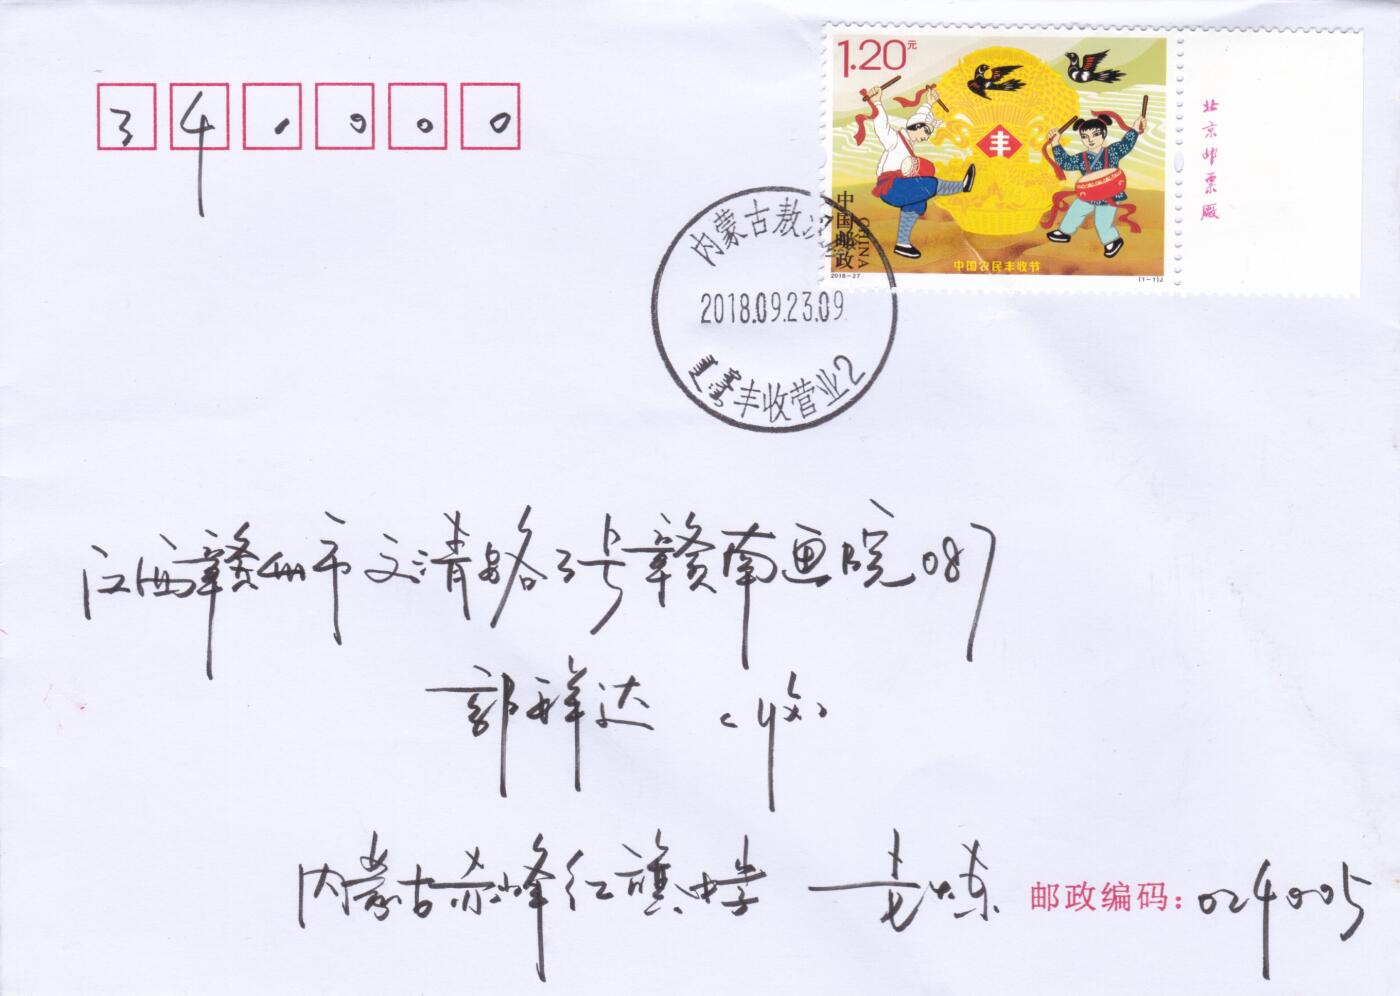 1.20元
丰
中国邮政
CHINA
中国农民丰收节
2018-27
(1-1)J
北京邮票厂
34.000
内蒙古敖汉
2018.09.23.09
丰收营业2
江西赣州市文清路3号赣南画院087
郭祥达 (收)
内蒙古赤峰红旗中学
邮政编码：024005